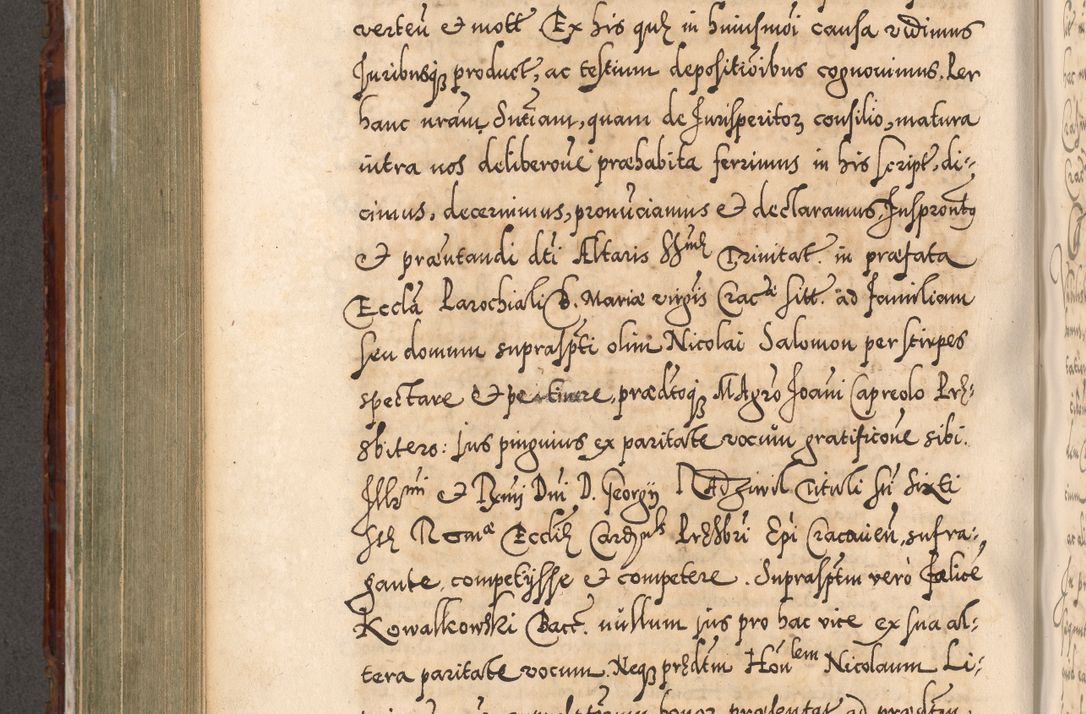 verteñ et mott Ex his quę in huiusmõi causa vidimus
Iuribusq; product, ac testium depositiõibus cognouimus. Per
hanc nr̃am Sñtiam, quam de Iurisperitoꝝ consilio, matura
intra nos deliberoñe præhabita ferrimus in his script, di-
cimus, decernimus, pronũciamus et declaramus, Iuspront9
et præntandi dĩ Altaris SSmę Trinitat. in præfata
Eccla Parochiali B. Mariæ virgis Cracæ sitt. ad familiam
seu domum suprasptĩ olim Nicolai Salomon per stirpes
spectare et pertinere, prædtoq; Magrõ Ioañi Capreolo Prę-
sbitero: ius pinguius ex paritate vocum gratificoñe sibi.
Illmi et Rmi Dni D. Georgÿ Radziwil tituli Sti Sixti
Stę Romæ Ecclię Cardnlis Presbri Epi Cracauieñ, sufra-
gante, competÿsse et competere. Suprasptm verò Fælice
Kowalkowski Bacc. nullum ius pro hac vice ex sua al-
tera paritate vocum. Neq; prędtm Hon lem Nicolaum Li-